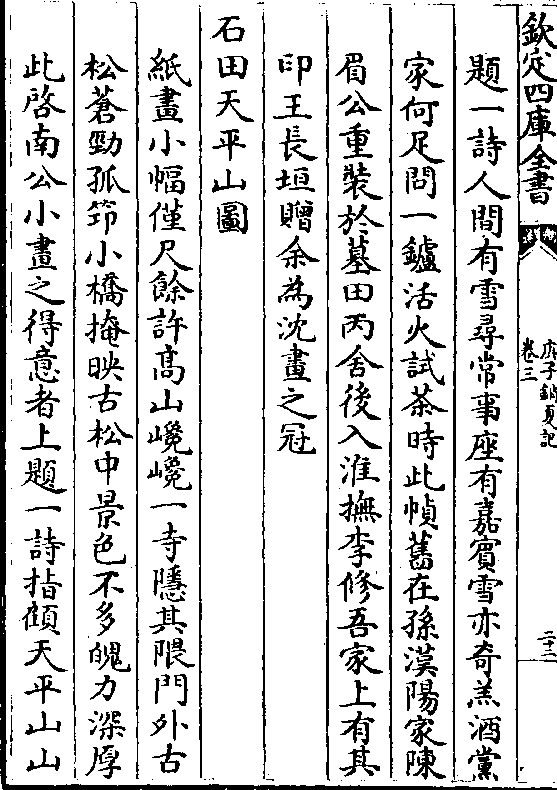 欽定四庫全書
庚子銷夏記
卷三
二十三
題一詩人間有雪尋常事座有嘉賓雪亦奇羔酒黨
家何足問一鑪活火試茶時此幀舊在孫漢陽家陳
眉公重裝於墓田丙舍後入淮撫李修吾家上有其
印王長垣贈余為沈畫之冠
石田天平山圖
紙畫小幅僅尺餘許高山巉巉一寺隱其隈門外古
松蒼勁孤筇小橋掩映古松中景色不多魄力深厚
此啓南公小畫之得意者上題一詩指顧天平山山